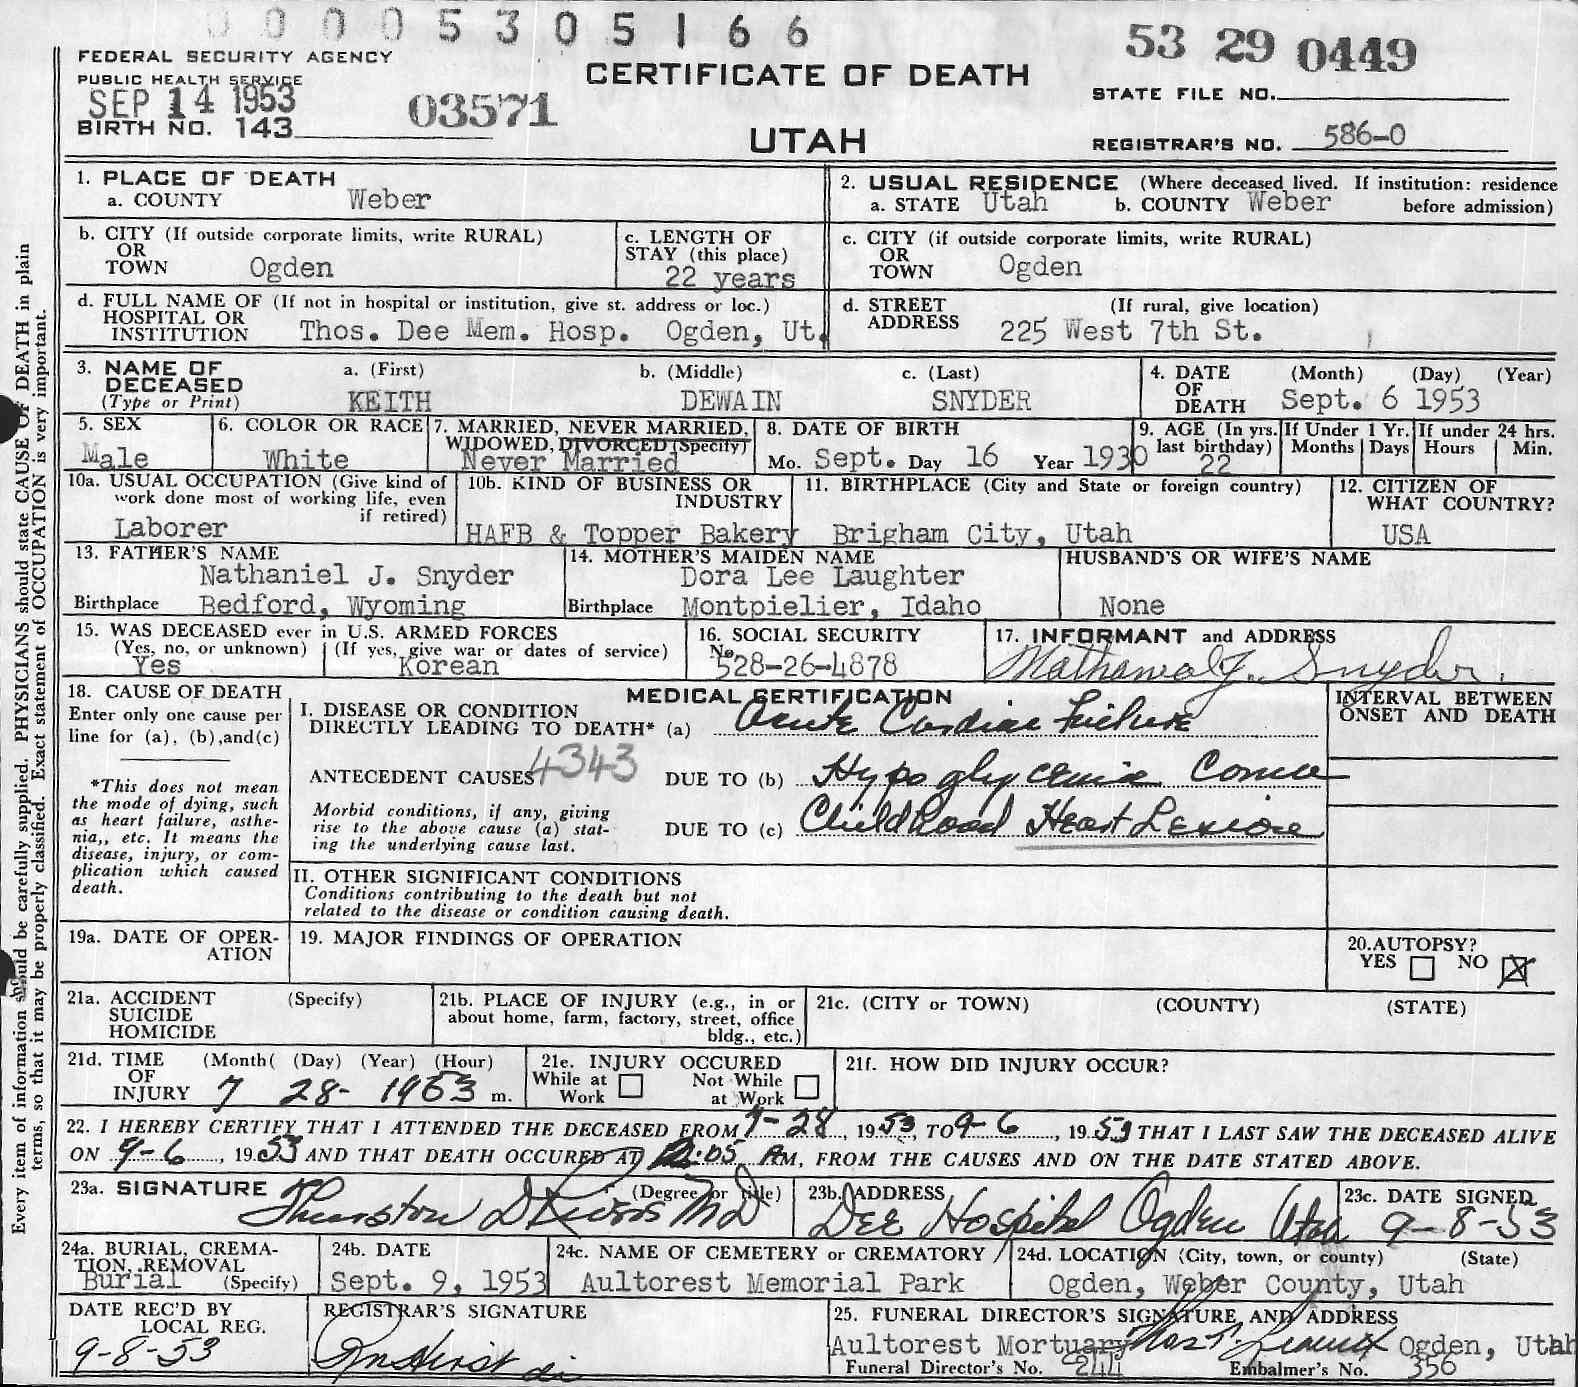 0 0 0 0 5 3 0 5 1 6 6
53 29 0449
FEDERAL SECURITY AGENCY
PUBLIC HEALTH SERVICE
SEP 14 1953
BIRTH NO. 143
03571
CERTIFICATE OF DEATH
UTAH
STATE FILE NO.
REGISTRAR'S NO. 586-0
1. PLACE OF DEATH
a. COUNTY Weber
2. USUAL RESIDENCE (Where deceased lived. If institution: residence before admission)
a. STATE Utah b. COUNTY Weber
b. CITY (If outside corporate limits, write RURAL)
OR
TOWN Ogden
c. LENGTH OF
STAY (this place)
22 years
c. CITY (if outside corporate limits, write RURAL)
OR
TOWN Ogden
d. FULL NAME OF (If not in hospital or institution, give st. address or loc.)
HOSPITAL OR
INSTITUTION Thos. Dee Mem. Hosp. Ogden, Ut.
d. STREET (If rural, give location)
ADDRESS 225 West 7th St.
3. NAME OF DECEASED
(Type or Print)
a. (First) b. (Middle) c. (Last)
KEITH DEWAIN SNYDER
4. DATE OF DEATH
(Month) (Day) (Year)
Sept. 6 1953
5. SEX
Male
6. COLOR OR RACE
White
7. MARRIED, NEVER MARRIED,
WIDOWED, DIVORCED (Specify)
Never Married
8. DATE OF BIRTH
Mo. Sept. Day 16 Year 1930
9. AGE (In yrs. last birthday)
22
If Under 1 Yr.
Months Days
If under 24 hrs.
Hours Min.
10a. USUAL OCCUPATION (Give kind of
work done most of working life, even
if retired)
Laborer
10b. KIND OF BUSINESS OR
INDUSTRY
HAFB & Topper Bakery
11. BIRTHPLACE (City and State or foreign country)
Brigham City, Utah
12. CITIZEN OF
WHAT COUNTRY?
USA
13. FATHER'S NAME
Nathaniel J. Snyder
Birthplace Bedford, Wyoming
14. MOTHER'S MAIDEN NAME
Dora Lee Laughter
Birthplace Montpielier, Idaho
HUSBAND'S OR WIFE'S NAME
None
15. WAS DECEASED ever in U.S. ARMED FORCES
(Yes, no, or unknown) (If yes, give war or dates of service)
Yes Korean
16. SOCIAL SECURITY
No. 528-26-4878
17. INFORMANT and ADDRESS
Nathaniel J. Snyder.
18. CAUSE OF DEATH
Enter only one cause per
line for (a), (b),and(c)
*This does not mean
the mode of dying, such
as heart failure, asthe-
nia,, etc. It means the
disease, injury, or com-
plication which caused
death.
MEDICAL CERTIFICATION
INTERVAL BETWEEN
ONSET AND DEATH
I. DISEASE OR CONDITION
DIRECTLY LEADING TO DEATH* (a) Acute Cardiac Failure
ANTECEDENT CAUSES 4343 DUE TO (b) Hypoglycemia Coma
Morbid conditions, if any, giving
rise to the above cause (a) stat-
ing the underlying cause last.
DUE TO (c) Childhood Heart Lesion
II. OTHER SIGNIFICANT CONDITIONS
Conditions contributing to the death but not
related to the disease or condition causing death.
19a. DATE OF OPER-
ATION
19. MAJOR FINDINGS OF OPERATION
20. AUTOPSY?
YES NO
21a. ACCIDENT (Specify)
SUICIDE
HOMICIDE
21b. PLACE OF INJURY (e.g., in or
about home, farm, factory, street, office
bldg., etc.)
21c. (CITY or TOWN) (COUNTY) (STATE)
21d. TIME (Month( (Day) (Year) (Hour)
OF
INJURY 7 28- 1953 m.
21e. INJURY OCCURED
While at Work
Not While at Work
21f. HOW DID INJURY OCCUR?
22. I HEREBY CERTIFY THAT I ATTENDED THE DECEASED FROM 7-28, 1953, TO 9-6, 1953 THAT I LAST SAW THE DECEASED ALIVE
ON 9-6, 1953 AND THAT DEATH OCCURED AT 12:05 AM, FROM THE CAUSES AND ON THE DATE STATED ABOVE.
23a. SIGNATURE (Degree or title)
Thurston MD
23b. ADDRESS
Dee Hospital Ogden Utah
23c. DATE SIGNED
9-8-53
24a. BURIAL, CREMA-
TION, REMOVAL
Burial (Specify)
24b. DATE
Sept. 9, 1953
24c. NAME OF CEMETERY or CREMATORY
Aultorest Memorial Park
24d. LOCATION (City, town, or county) (State)
Ogden, Weber County, Utah
DATE REC'D BY
LOCAL REG.
9-8-53
REGISTRAR'S SIGNATURE
25. FUNERAL DIRECTOR'S SIGNATURE, AND ADDRESS
Aultorest Mortuary Ogden, Utah
Funeral Director's No. 244 Embalmer's No. 356
Every item of information should be carefully supplied. PHYSICIANS should state CAUSE OF DEATH in plain
terms, so that it may be properly classified. Exact statement of OCCUPATION is very important.